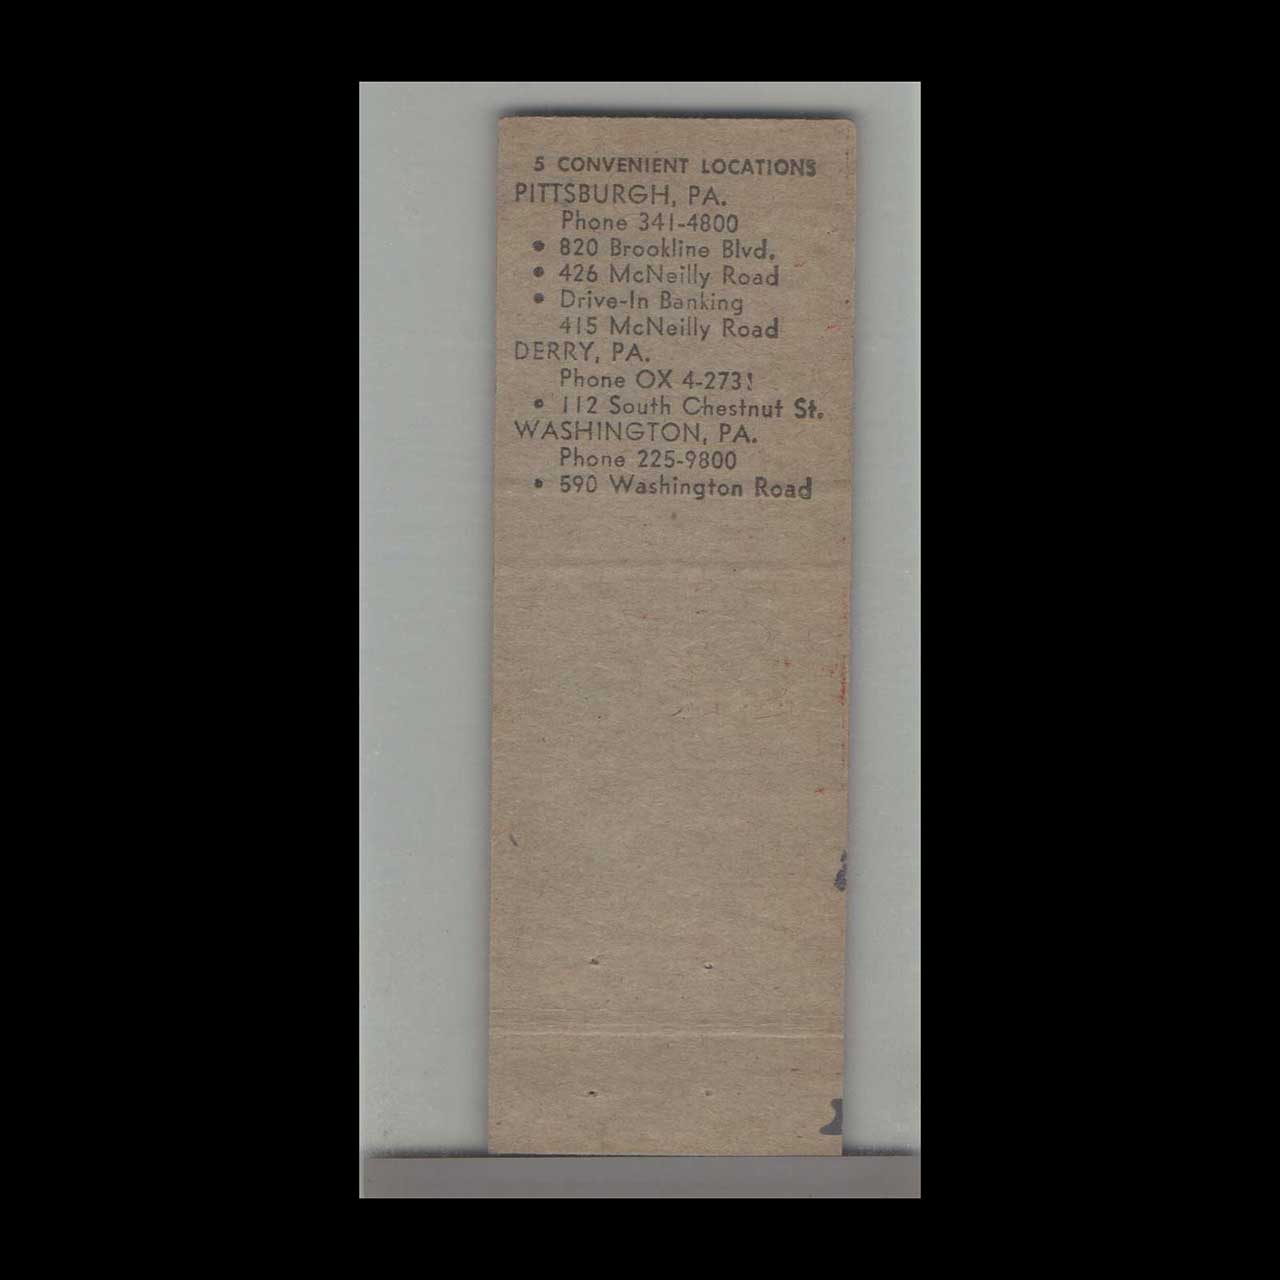 5 CONVENIENT LOCATIONS
PITTSBURGH, PA.
Phone 341-4800
• 820 Brookline Blvd.
• 426 McNeilly Road
• Drive-In Banking
415 McNeilly Road
DERRY, PA.
Phone OX 4-2731
• 112 South Chestnut St.
WASHINGTON, PA.
Phone 225-9800
• 590 Washington Road